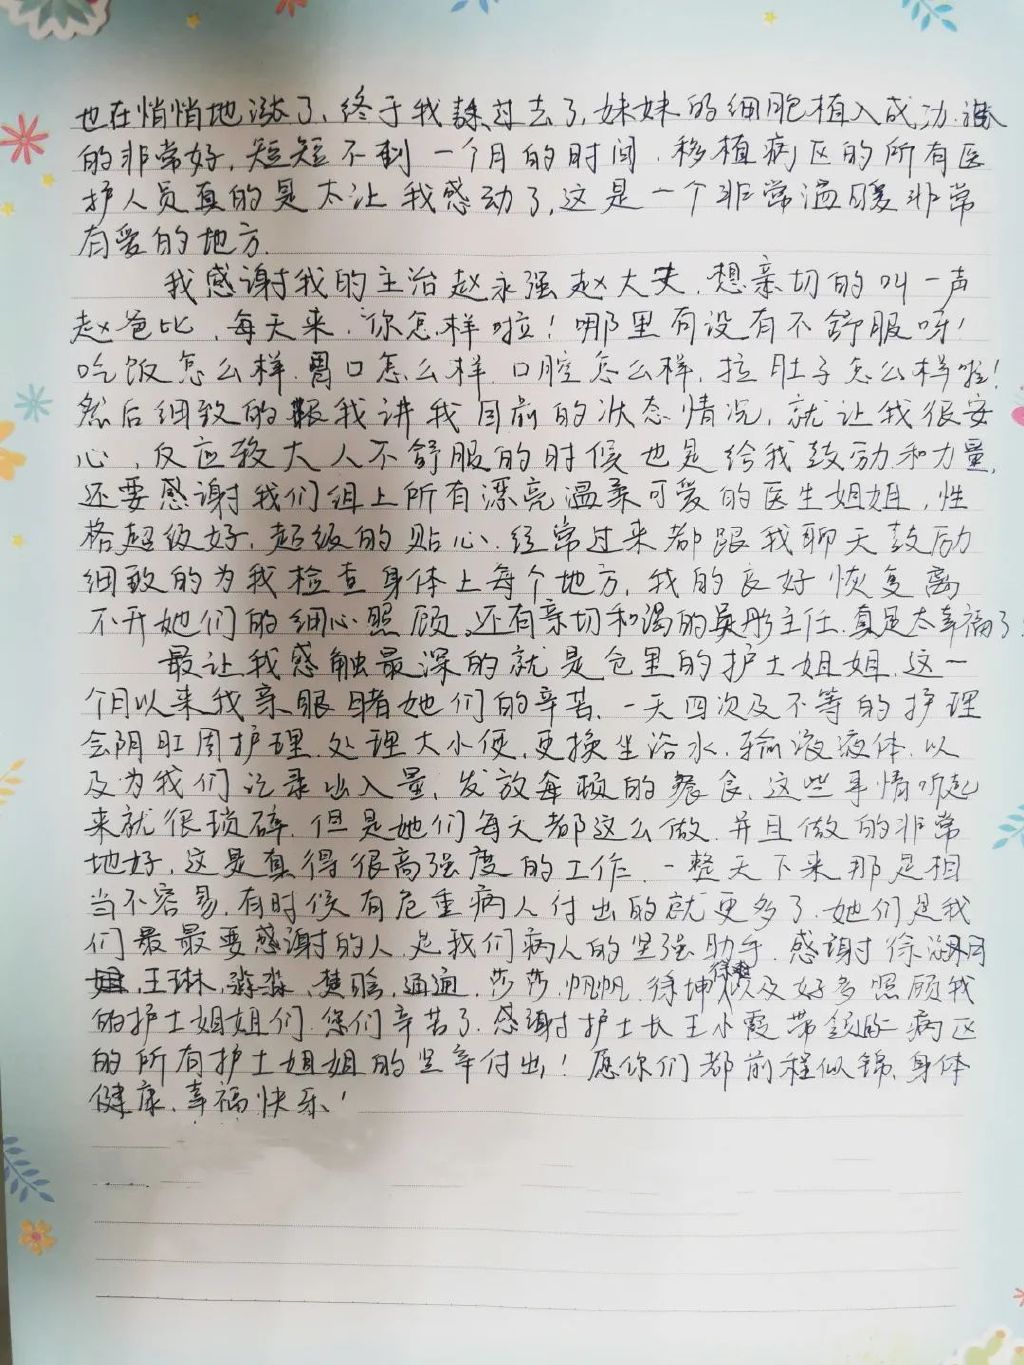 也在悄悄地涨了,终于我熬过去了,妹妹的细胞植入成功,
的非常好,短短不到一个月的时间,移植病区的所有医
护人员真的是太让我感动了,这是一个非常温暖非常
有爱的地方.
我感谢我的主治赵永强赵大夫,想亲切的叫一声
赵爸比,每天来,你怎样啦!哪里有没有不舒服呀!
吃饭怎么样,胃口怎么样,口腔怎么样,拉肚子怎么样啦!
然后细致的跟我讲我目前的状态情况,就让我很安
心,反应较大人不舒服的时候也是给我鼓励和力量,
还要感谢我们组上所有漂亮温柔可爱的医生姐姐,性
格超级好,超级的贴心,经常过来都跟我聊天鼓励
细致的为我检查身体上每个地方,我的良好恢复离
不开她们的细心照顾,还有亲切和蔼的吴彤主任,真是太幸福了
最让我感触最深的就是仓里的护士姐姐,这一
个月以来我亲眼睹她们的辛苦,一天四次及不等的护理
会阴肛周护理,处理大小便,更换坐浴水,输液液体,以
及为我们记录出入量,发放每顿的餐食,这些事情听起
来就很琐碎,但是她们每天都这么做,并且做的非常
地好,这是真得很高强度的工作,一整天下来那是相
当不容易,有时候有危重病人付出的就更多了,她们是我
们最最要感谢的人,是我们病人的坚强助手,感谢徐
王琳,淼淼,楚晗,通通,莎莎,帆帆,徐坤以及好多照顾我
的护士姐姐们,您们辛苦了,感谢护士长王小霞带领 病区
的所有护士姐姐的坚辛付出!愿你们都前程似锦,身体
健康,幸福快乐!